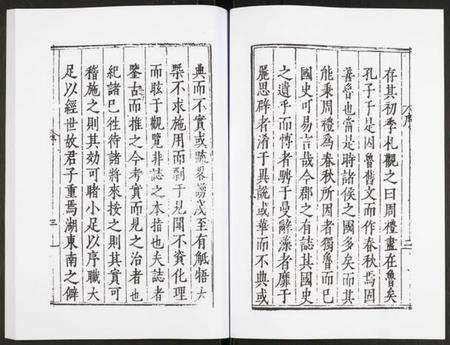 序
二
存其初季札觀之曰周禮盡在魯矣
孔子于是因魯舊文而作春秋焉固
魯也當是時諸侯之國多矣而其
能秉周禮爲春秋所因者獨魯而已
國史可易言哉今郡之有誌其國史
之遺乎而愽者騁于曼辭藻者靡于
麗思辟者淆于異說或華而不典或
典而不實或疏畧至有觝牾
槩不求施用而剽于見聞不資化理
而眩于觀覽非誌之本指也夫誌者
鑒古而推之今考實而見之治者也
紀諸已徃待諸將來按之則其實可
稽施之則其効可睹小足以序職大
足以經世故君子重焉湖東南之僻
三